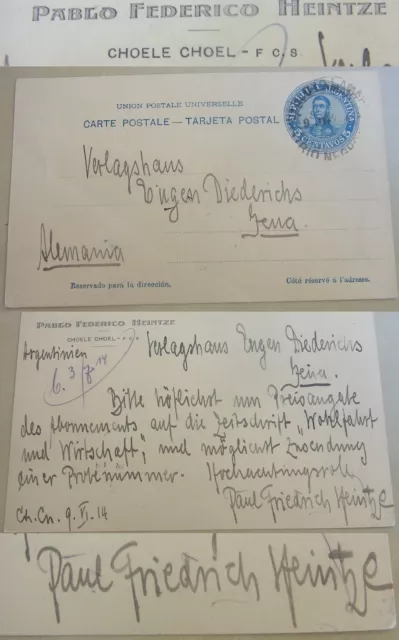 PABLO FEDERICO HEINTZE
CHOELE CHOEL - F C S
UNION POSTALE UNIVERSELLE
CARTE POSTALE — TARJETA POSTAL
5 CENTAVOS 5
RIO NEGRO
Verlagshaus
Eugen Diederichs
Jena.
Alemania
Reservado para la dirección.
Côté réservé à l'adresse.
PABLO FEDERICO HEINTZE
CHOELE CHOEL - F C S
Argentinien
Verlagshaus Eugen Diederichs
Jena.
Bitte höflichst um Preisangabe
des Abonnements auf die Zeitschrift „Wohlfahrt
und Wirtschaft", und möglichst Zusendung
einer Probenummer. Hochachtungsvoll
Paul Friedrich Heintze
Ch.Ch. 9. VI. 14
Paul Friedrich Heintze